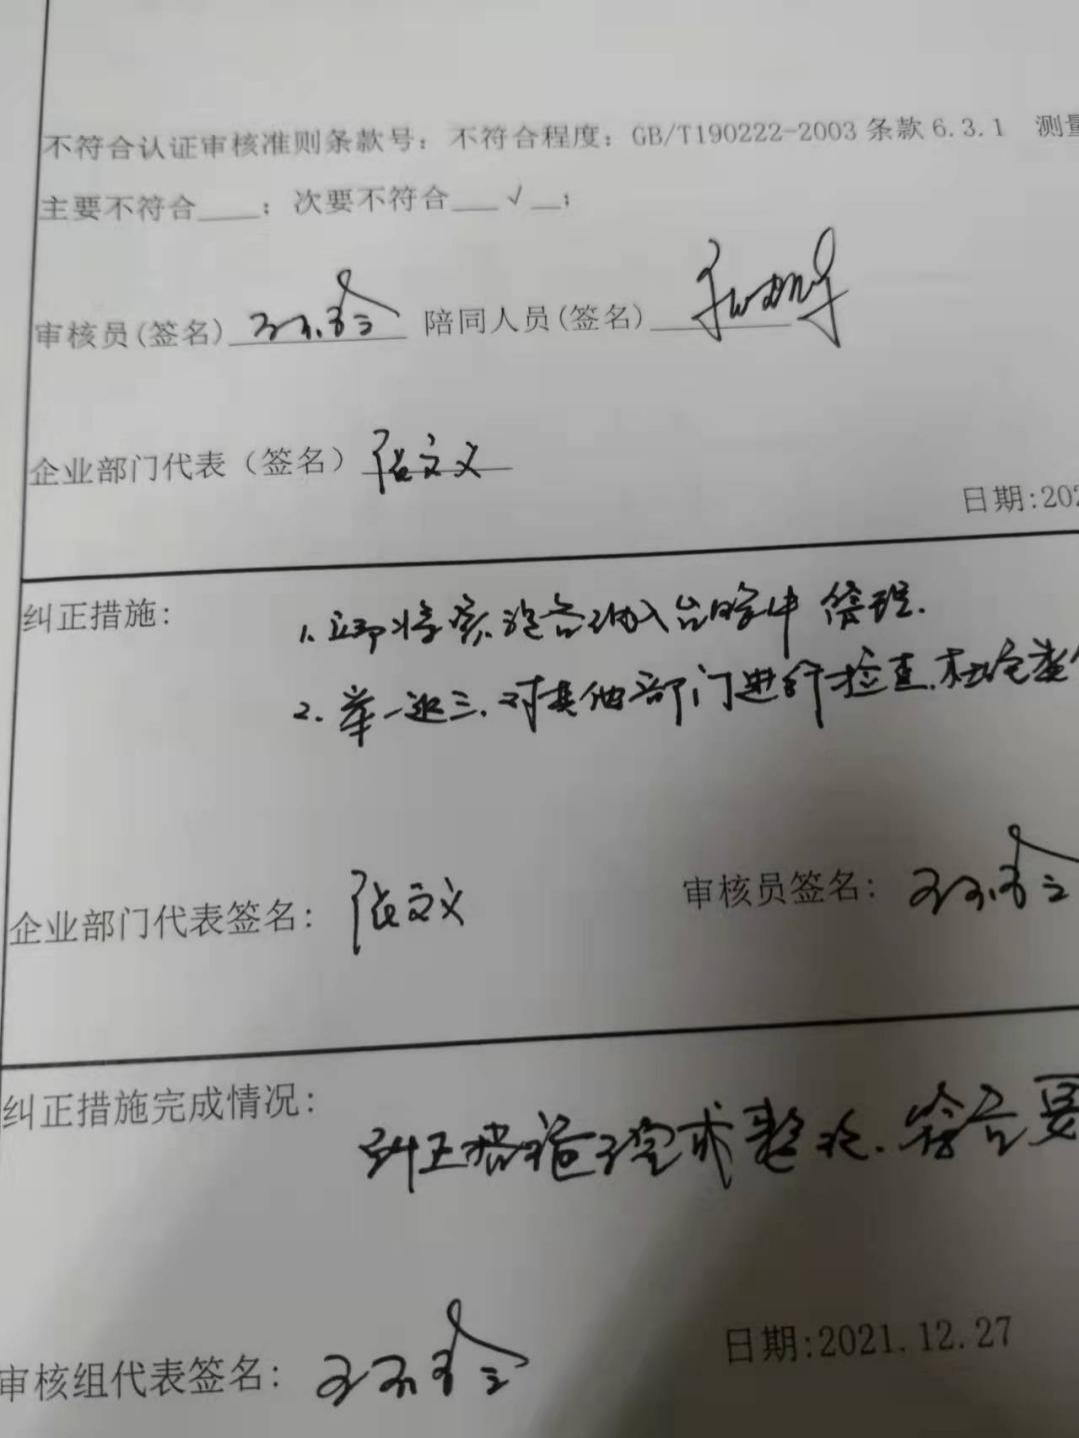 不符合认证审核准则条款号：不符合程度：GB/T190222-2003条款6.3.1 测量
主要不符合____；次要不符合___√__；
审核员(签名) 陪同人员(签名)
企业部门代表（签名）张文义
日期:202
纠正措施:
1.立即将实验台纳入台账中管理.
2.举一返三.对其他部门进行检查.杜绝类
企业部门代表签名: 张文义 审核员签名:
纠正措施完成情况:
纠正措施完成整改.符合要
日期:2021.12.27
审核组代表签名: